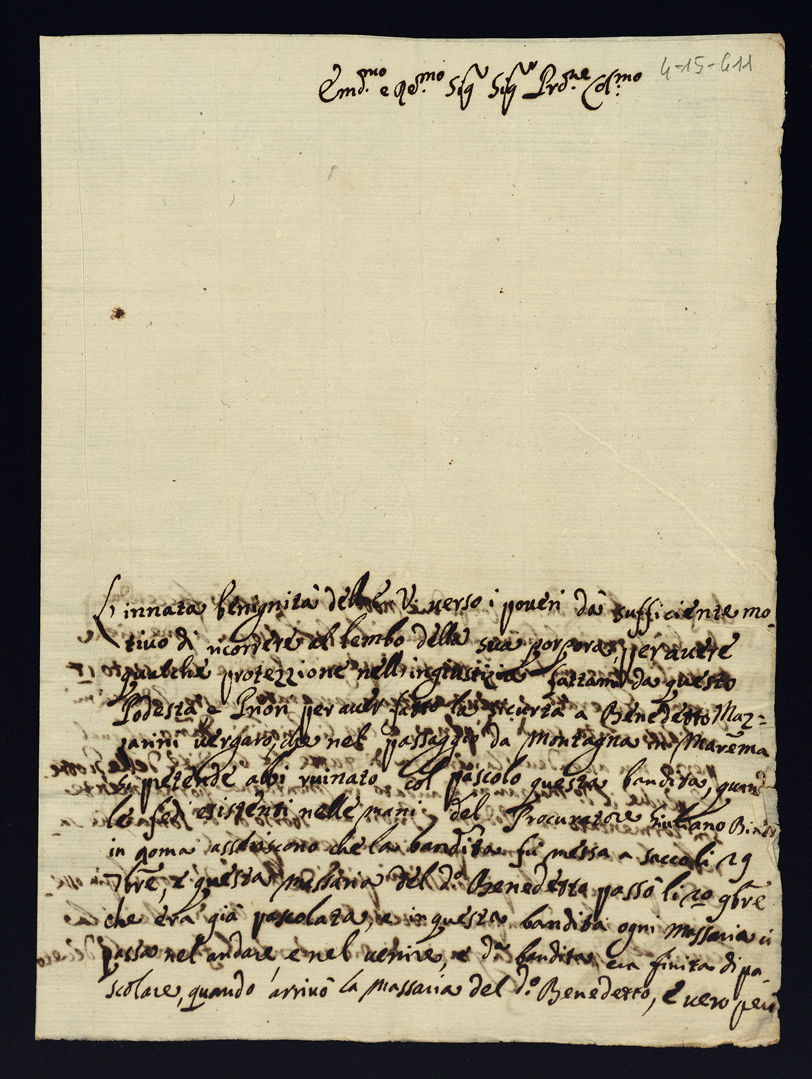 4-15-611
Em.mo e Re.mo Sig.r Sig.r Prõ.ne Col.mo
L'innata benignità dell'E. V. verso i poveri dà sufficiente mo-
tivo di ricorrere al lembo della sua porpora, per avere
qualche protezzione nell'ingiustizia fattami da questo
Podestà e Priori per aver fatto la sicurtà a Benedetto Maz=
zarini vergaro, che nel passaggio da Montagna in Marem̃a
si pretende abbi ruinato col pascolo questa bandita, quan-
le fedi esistenti nelle mani del Procuratore Giuliano
in Roma asseriscono che la bandita fù messa a sacco li 29
7bre, e questa Massaria del d.o Benedetto passò li 20 9bre
che era già pascolata, e in questa bandita ogni Massaria vi
passa nel andare e nel venire, e d.a bandita era finita di pa-
scolare, quando arrivò la Massaria del d.o Benedetto, è vero però